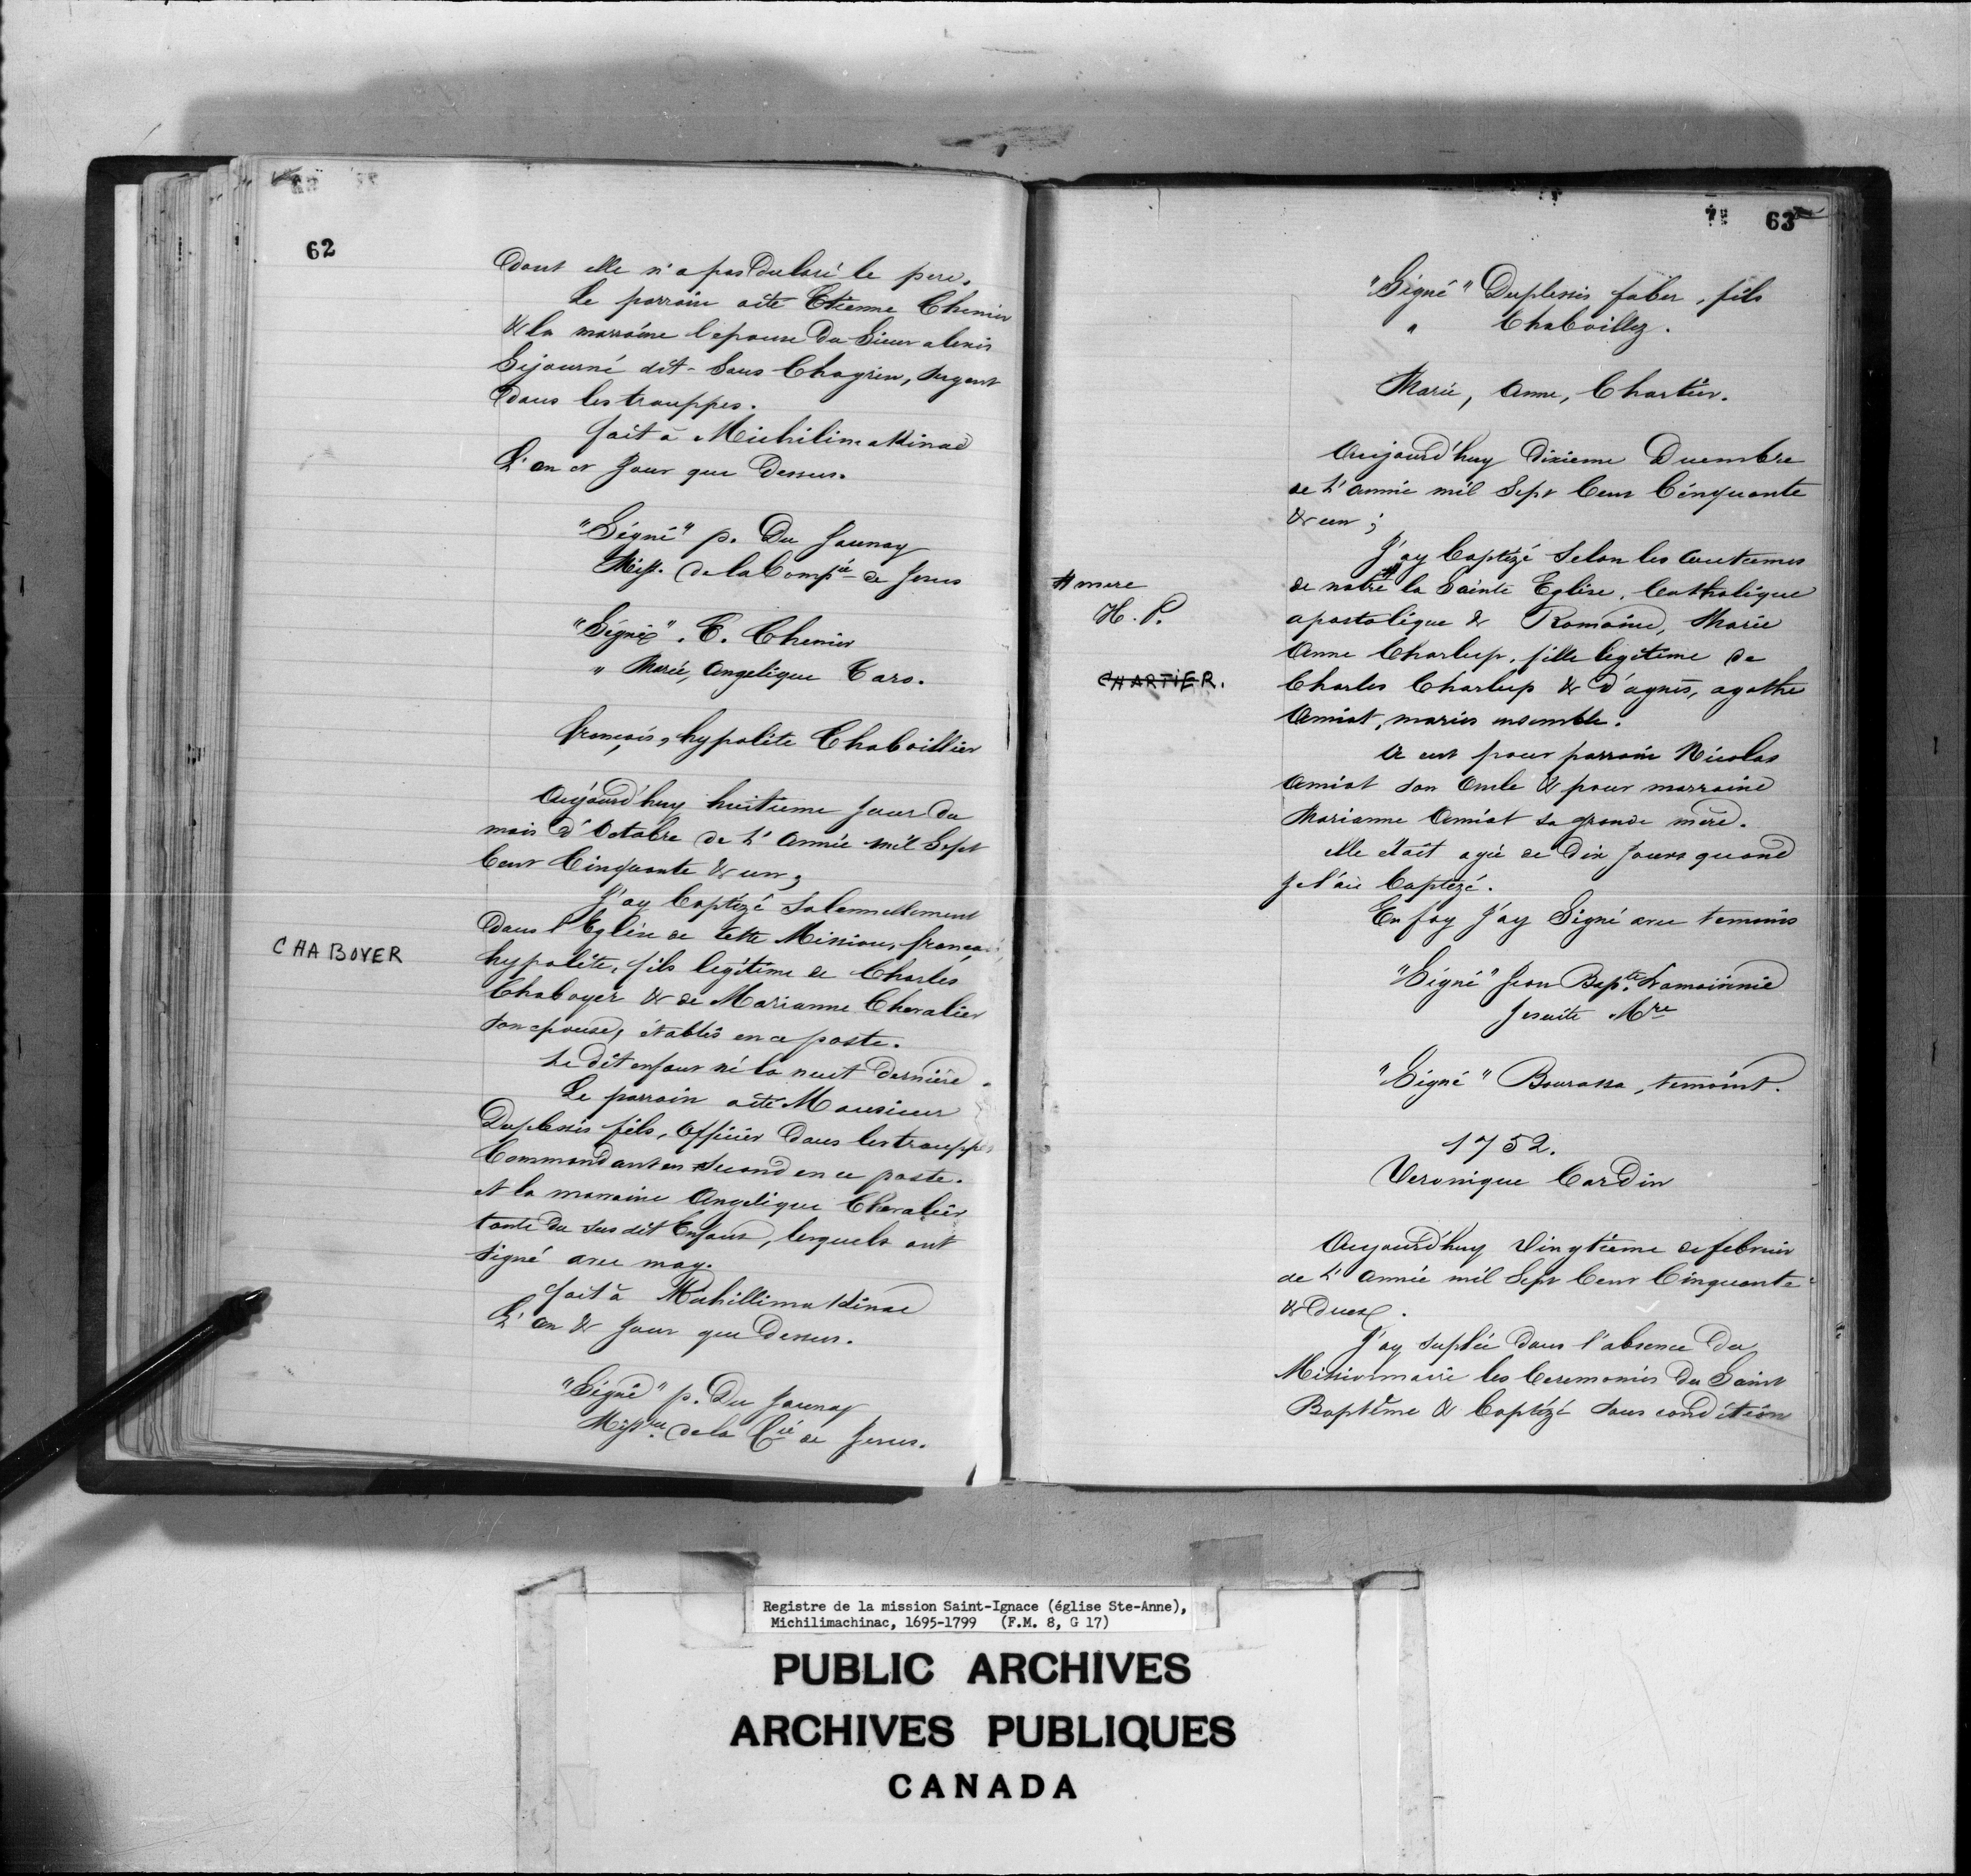 62
dont elle n'a pas declaré le pere.
Le parrain a été Etienne Chenier
& la marraine l'epouse du Sieur alexis
Sejourné dit - Sans Chagrin, sergent
dans les trouppes.
fait à Michilimakinac
L'an et Jour que dessus.
"Signé" p. Du Jaunay
Miss. de la Compie de Jesus
"Signé". E. Chenier
" Marie, Angelique Taro.
françois, hypolite Chaboillier
Aujourd'huy huitieme jour du
mois d'Octobre de L'Année mil Sept
Cent Cinquante & un;
J'ay Baptizé Solennellement
dans l'Eglise de cette Mission, françois,
CHABOYER
hypolite, fils legitime de Charles
Chaboyer & de Marianne Chevalier
son epouse, établis en ce poste.
Le dit enfant né la nuit derniére.
Le parrain a été Monsieur
Duplessis fils, Officier dans les trouppes
Commandant en second en ce poste.
et la marraine Angelique Chevalier
tante du sus dit Enfant, lesquels ont
signé avec moy.
fait à Michillimakinac
L'an & Jour que dessus.
"Signé" p. Du Jaunay
Missre. de la Cie de Jesus.
63
"Signé" Duplessis faber, fils
" Chaboillez.
Marie, Anne, Chartier.
Aujourd'huy dixieme Decembre
de L'année mil Sept Cent Cinquante
& un;
J'ay Baptizé Selon les Coutumes
# mere
de notre # la Sainte Eglise, Catholique
H. P.
apostolique & Romaine, Marie
Anne Charlup, fille legitime de
CHARTIER.
Charles Charlup & d'agnes, agathe
Amiot, mariés ensemble.
A eut pour parrain Nicolas
Amiot son Oncle & pour marraine
Marianne Amiot sa grande mere.
elle était agée de Dix Jours quand
je l'ai Baptizé.
En foy J'ay Signé avec temoins
"Signé" Jean Bapte. Lamorinnie
Jesuite Mre
"Signé" Bourassa, temoint.
1752.
Veronique Cardin
Aujourd'huy Vingtieme de febrier
de L'année mil Sept Cent Cinquante
& Duex.
J'ay suplée dans l'absence du
Missionnaire les Ceremonies du Saint
Baptême & Baptizé sous condition
Registre de la mission Saint-Ignace (église Ste-Anne),
Michilimachinac, 1695-1799 (F.M. 8, G 17)
PUBLIC ARCHIVES
ARCHIVES PUBLIQUES
CANADA